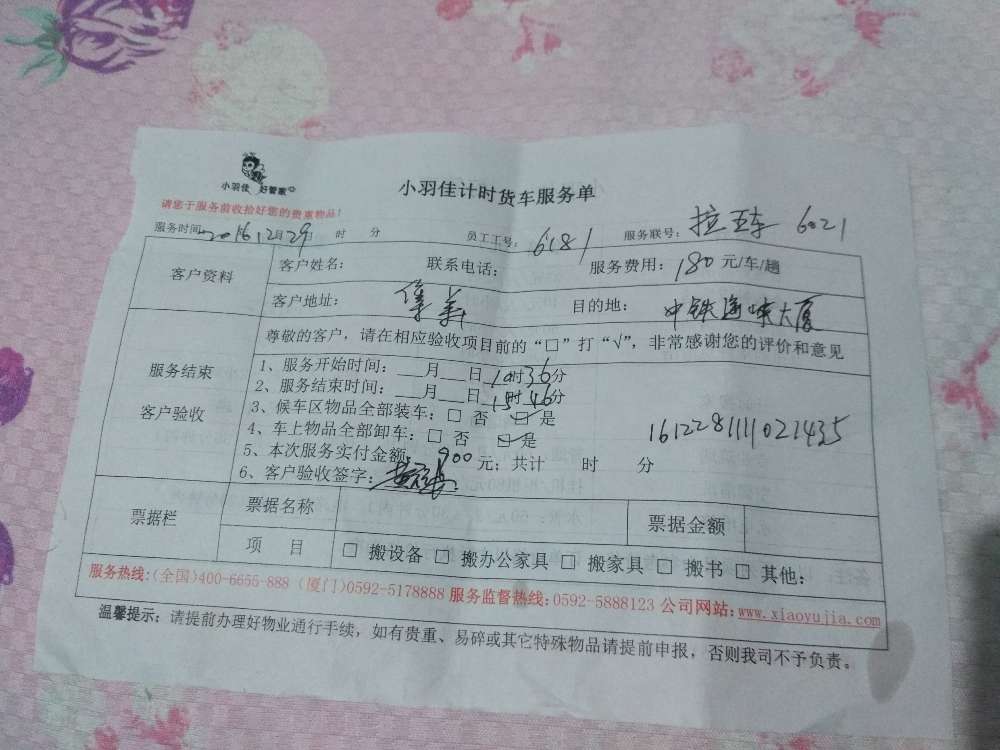 小羽佳 好管家
小羽佳计时货车服务单
请您于服务前收拾好您的贵重物品！
服务时间 2016 12月29日 时 分 员工工号：6181 服务联号：拉五车 6021
客户资料 客户姓名： 联系电话： 服务费用：180元/车/趟
客户地址： 目的地：中铁海味大厦
服务结束
客户验收
尊敬的客户，请在相应验收项目前的“□”打“√”，非常感谢您的评价和意见
1、服务开始时间：___月___日 10时36分
2、服务结束时间：___月___日 15时46分
3、候车区物品全部装车：□ 否 ☑ 是
4、车上物品全部卸车：□ 否 ☑ 是
1612281111021435
5、本次服务实付金额：900元；共计 时 分
6、客户验收签字：
票据栏 票据名称 票据金额
项 目 □ 搬设备 □ 搬办公家具 □ 搬家具 □ 搬书 □ 其他：
服务热线:(全国)400-6655-888 (厦门)0592-5178888 服务监督热线:0592-5888123 公司网站:www.xiaoyujia.com
温馨提示：请提前办理好物业通行手续，如有贵重、易碎或其它特殊物品请提前申报，否则我司不予负责。